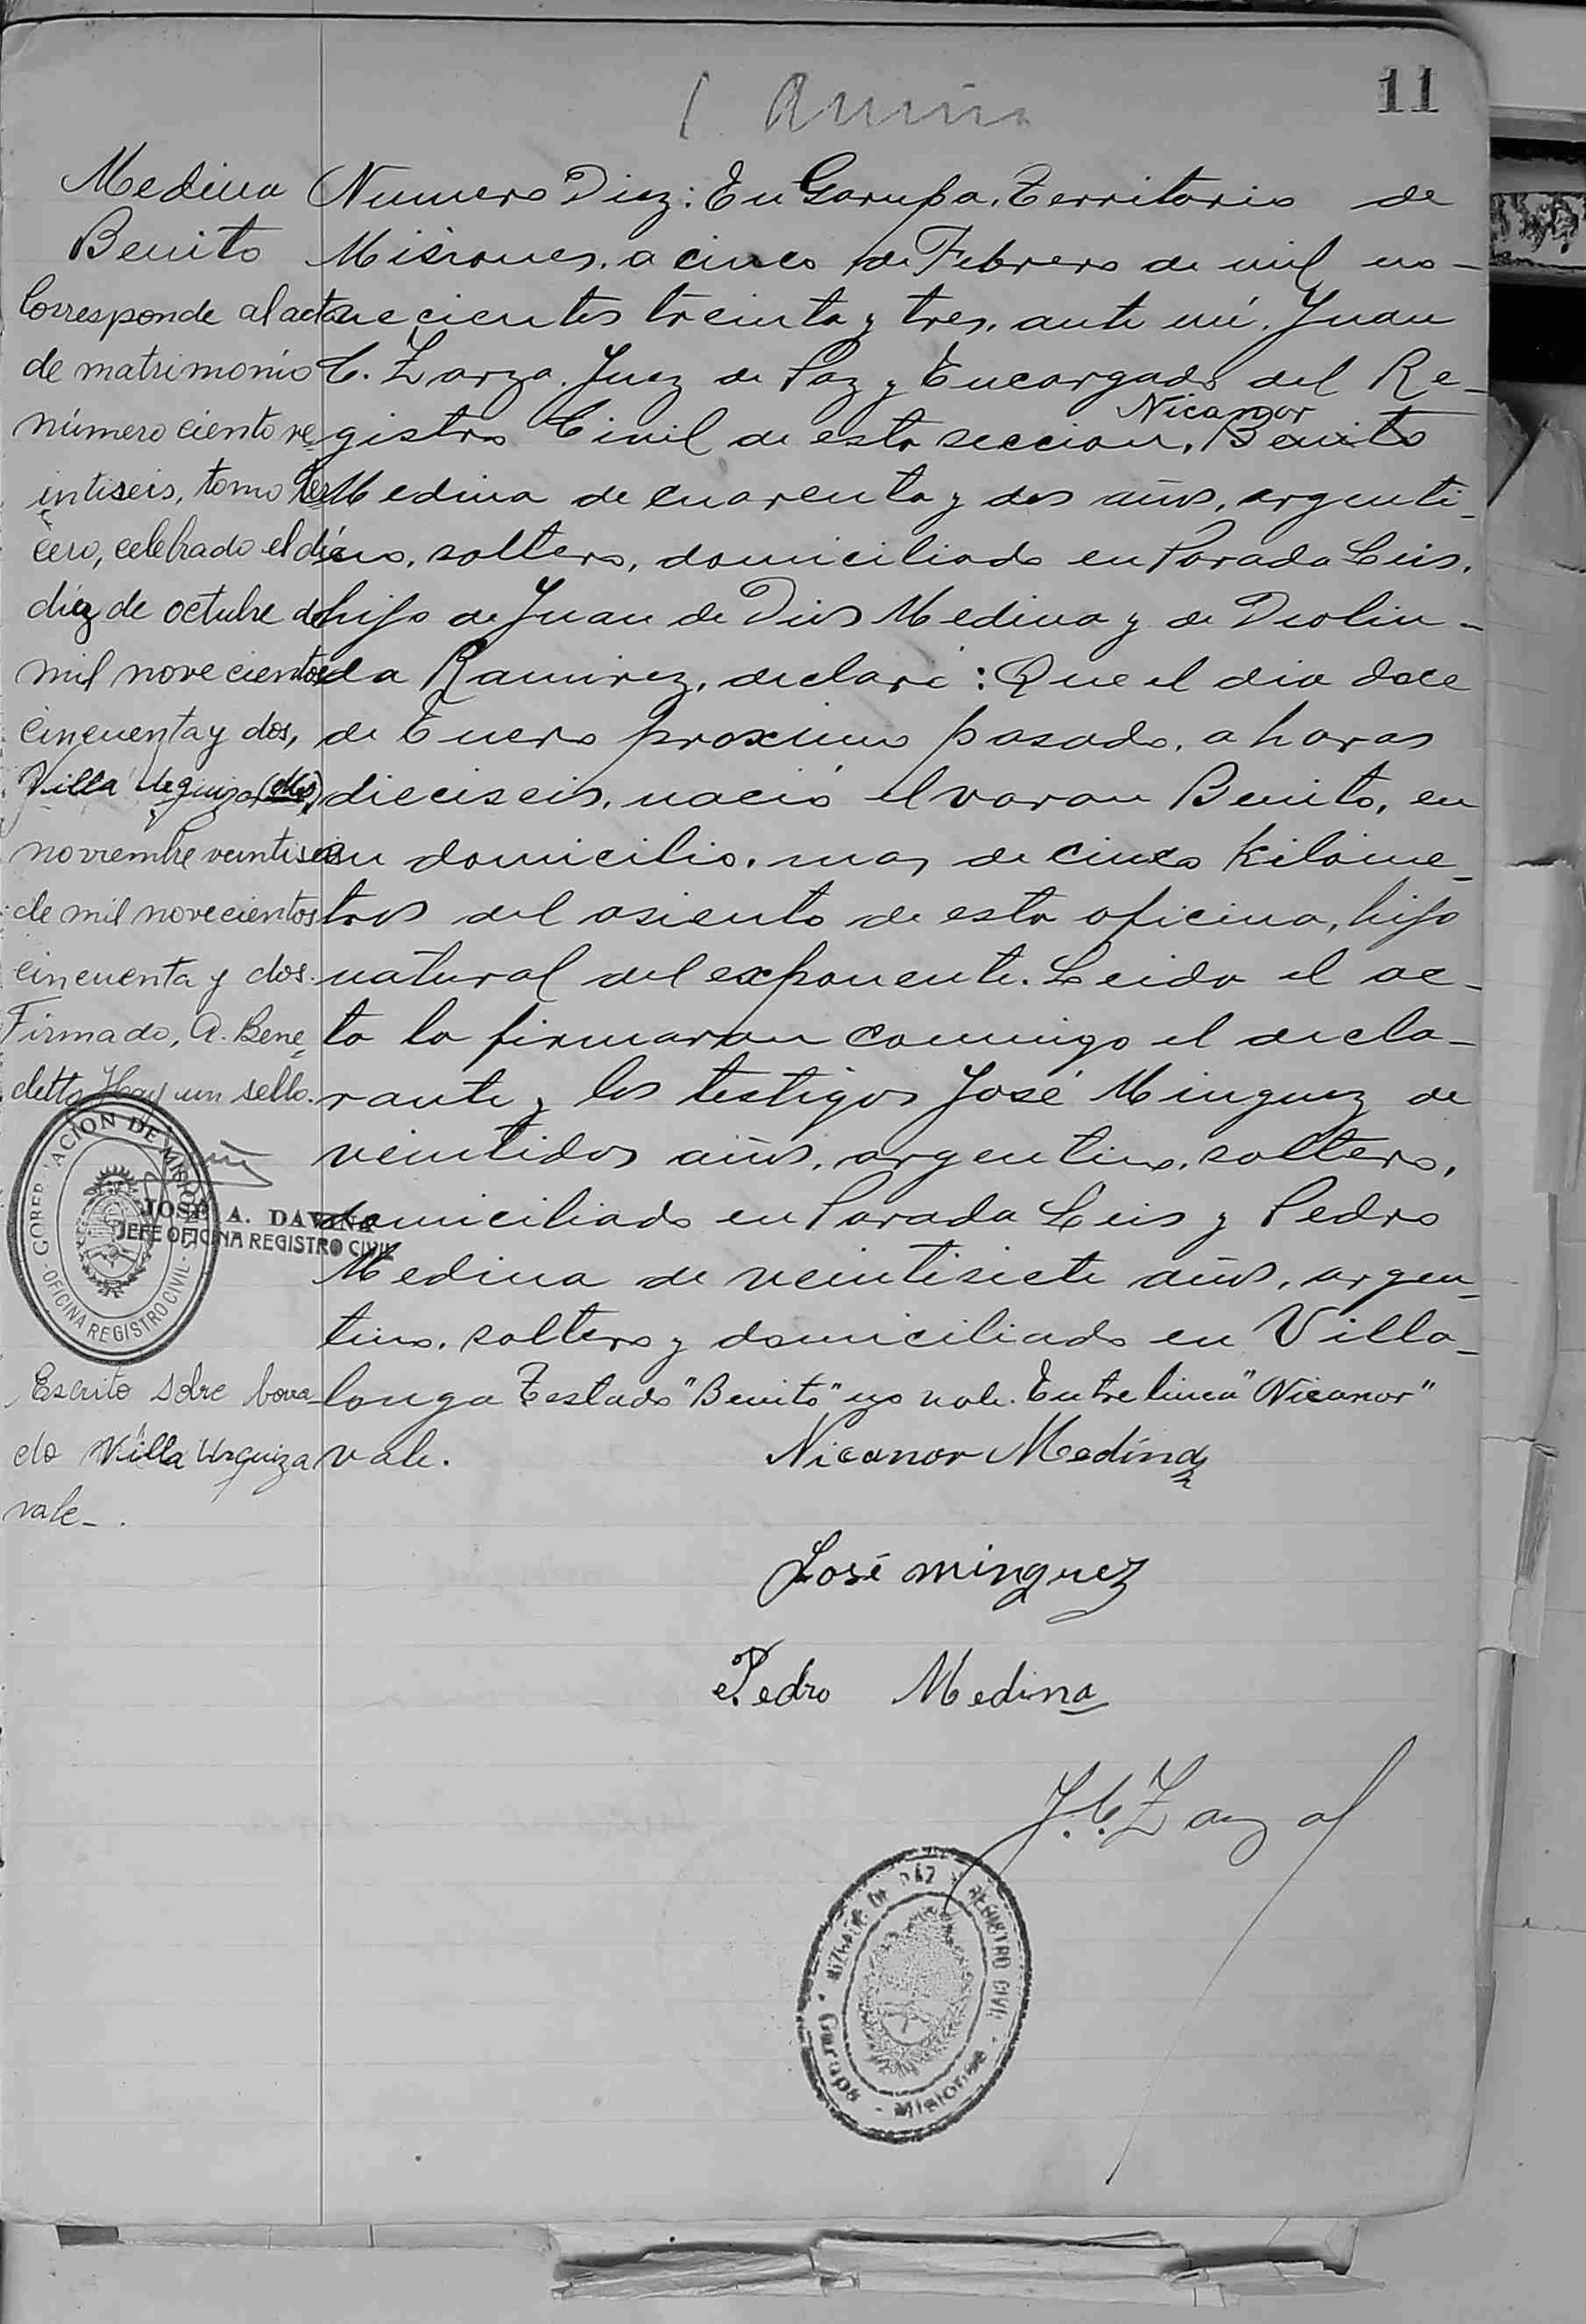 11
Medina
Benito
Corresponde al acta
de matrimonio
número ciento ve
intiseis, tomo ter
cero, celebrado el día
diez de octubre de
mil novecientos
cincuenta y dos,
Villa Urquiza (Mis)
noviembre veintiseis
de mil novecientos
cincuenta y dos.
Firmado, A. Bene
detto Hay un sello.
GOBERNACION DE MISIONES
OFICINA REGISTRO CIVIL
JOSE A. DAVIÑA
JEFE OFICINA REGISTRO CIVIL
Escrito sobre borra-
do Villa Urquiza
vale-.
Numero Diez: En Garupa, Territorio de
Misiones, a cinco de Febrero de mil no-
vecientos treinta y tres, ante mí, Juan
C. Zarza, Juez de Paz y Encargado del Re-
gistro Civil de esta seccion, Benito
Nicanor
Medina de cuarenta y dos años, argenti-
no, soltero, domiciliado en Parada Leis,
hijo de Juan de Dios Medina y de Deolin-
da Ramirez, declaró: Que el dia doce
de Enero proximo pasado, a horas
dieciseis, nació el varon Benito, en
su domicilio, mas de cinco kilome-
tros del asiento de esta oficina, hijo
natural del exponente. Leida el ac-
ta la firmaron conmigo el decla-
rante y los testigos José Minguez de
veintidos años, argentino, soltero,
domiciliado en Parada Leis y Pedro
Medina de veintisiete años, argen-
tino, soltero y domiciliado en Villa-
longa Testado "Benito" no vale. Entre linea "Nicanor"
vale.
Nicanor Medina
José minguez
Pedro Medina
J. C. Zarza
JUZGADO DE PAZ Y REGISTRO CIVIL
Garupá - Misiones